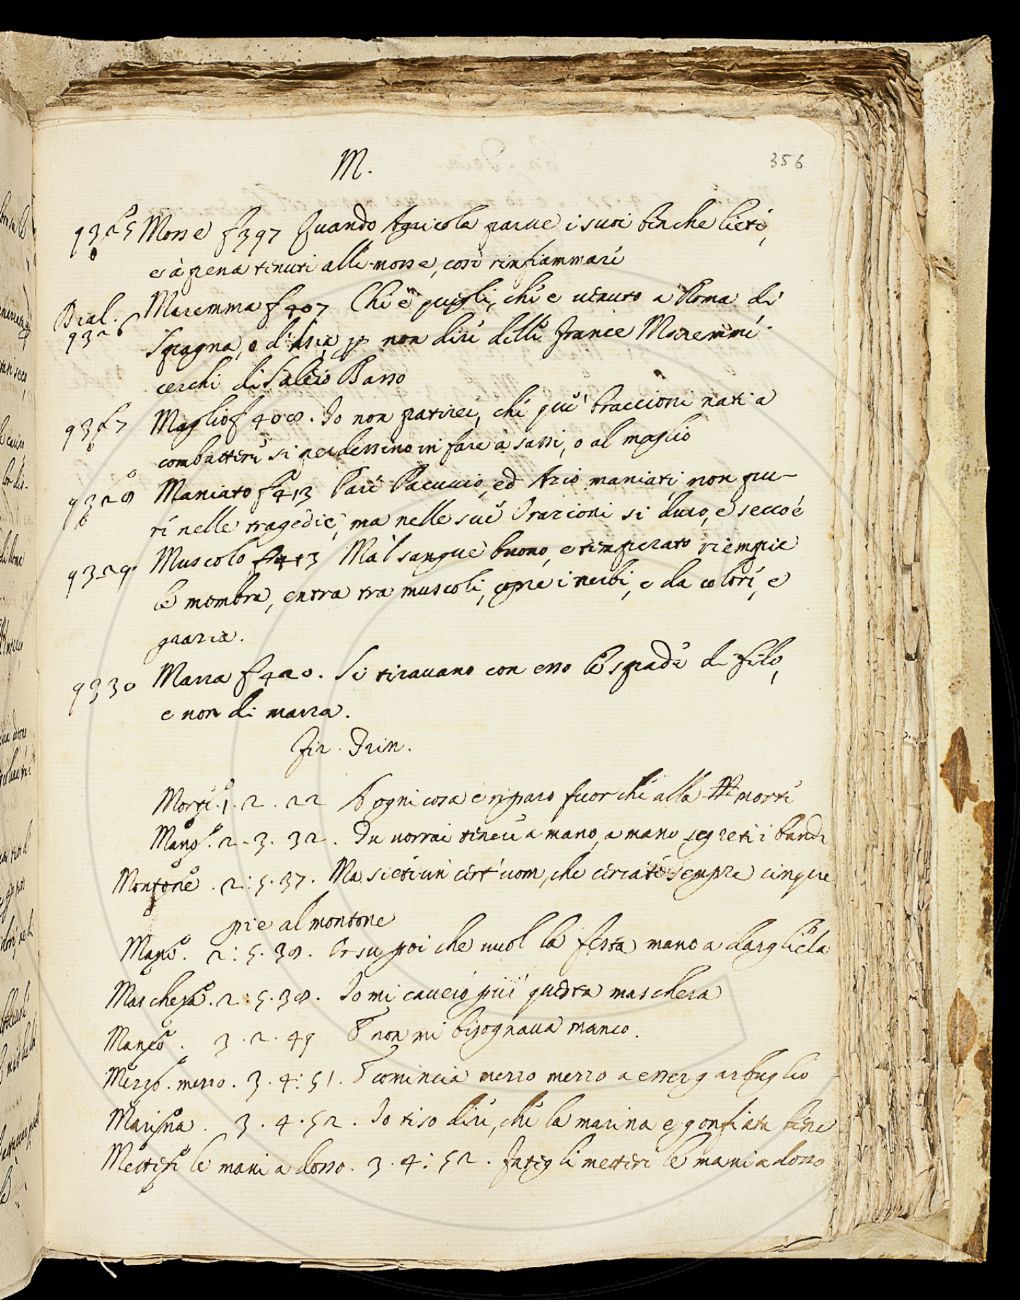 M.
356
93 25 Mosse f 397 Quando Agricola parue i suoi benche lieti,
e à pena tenuti alle mosse, così rinfiammare
Dial. 93 26 Maremma f 407 Chi è quegli, che e uenuto a Roma di
Spagna, o d'Asia p non dire delle Francie Maremme
cerchi di Saleio Basso
93 27 Maglio f 408. Io non patirei, che quei braccioni nati a
combattere si perdessino in fare a sassi, o al maglio
93 28 Maniato f 413 Pare Pacuuio, ed Azio maniati non pu-
re nelle tragedie, ma nelle sue Orazioni si duro, e secco é
93 29 Muscolo f 413 Ma'l sangue buono, e temperato riempie
le membra, entra tra muscoli, copre i nerbi, e da colore, e
grazia.
93 30 Marra f 420. Si tirauano con esso le spade di filo,
e non di marra.
Fin. Prin.
Morte. 1. 2. 22 A ogni cosa e riparo fuor che alla morte
Mano. 2. 3. 32. Tu uorrai tenere a mano, a mano segreti i bandi
Montone. 2. 5. 37. Ma siete un cert' uom, che cercate sempre cinque
pie al montone
Mano. 2. 5. 38. Orsu poi che uuol la festa mano a dargliela
Maschera. 2. 5. 38. Io mi caueró pur questa maschera
Manco. 3. 2. 49 E non mi bisognaua manco.
Mezzo. mezzo. 3. 4. 51. E comincia mezzo mezzo a esser garbuglio
Marina. 3. 4. 52. Io ti so dire, che la marina e gonfiata bene
Mettere le mani a dosso. 3. 4. 52. Fategli mettere le mani adosso